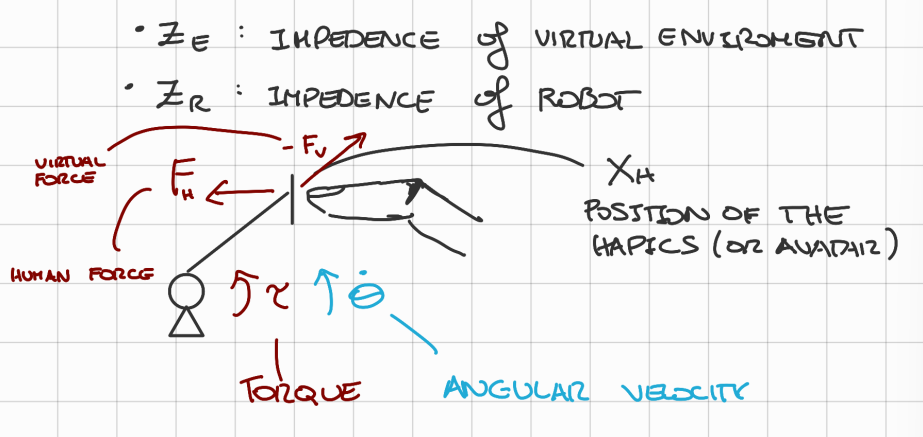 • Z_E : IMPEDENCE of VIRTUAL ENVIROMENT
• Z_R : IMPEDENCE of ROBOT
VIRTUAL
FORCE
- F_V
F_H
X_H
POSITION OF THE
HAPICS (OR AVADAIR)
HUMAN FORCE
τ
θ̇
TORQUE
ANGULAR VELOCITY